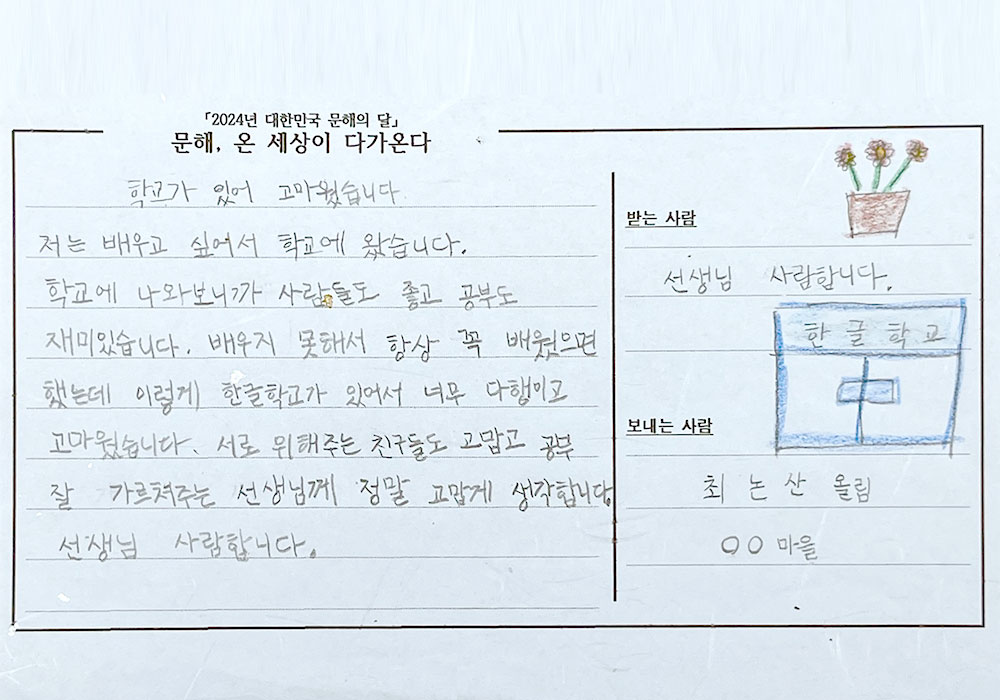 「2024년 대한민국 문해의 달」
문해, 온 세상이 다가온다
학교가 있어 고마웠습니다
저는 배우고 싶어서 학교에 왔습니다.
학교에 나와보니까 사람들도 좋고 공부도
재미있습니다. 배우지 못해서 항상 꼭 배웠으면
했는데 이렇게 한글학교가 있어서 너무 다행이고
고마웠습니다. 서로 위해주는 친구들도 고맙고 공부
잘 가르쳐주는 선생님께 정말 고맙게 생각합니다
선생님 사람합니다.
받는 사람
선생님 사람합니다.
한글학교
보내는 사람
최논산 올림
○○ 마을